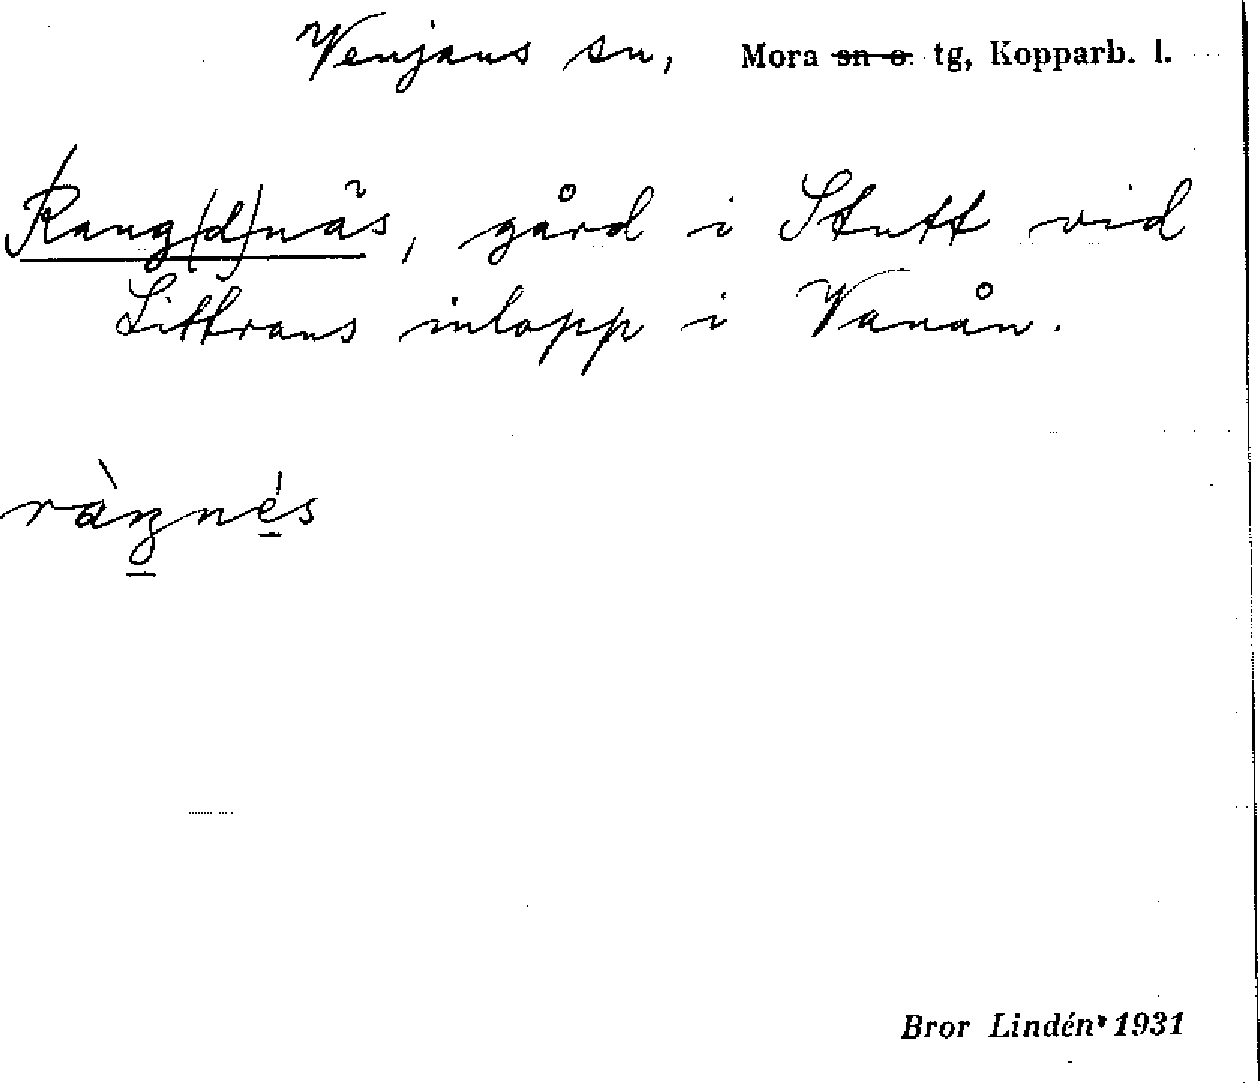 Venjans sn, Mora ~~sn o.~~ tg, Kopparb. l.
Rang(d)näs, gård i Stutt vid
Littrans inlopp i Vanån.
ràŋnés
Bror Lindén 1931